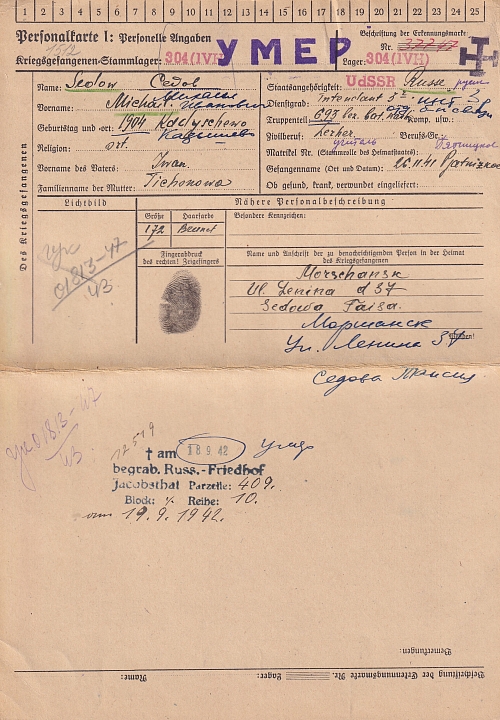 1 2 3 4 5 6 7 8 9 10 11 12 13 14 15 16 17 18 19 20 21 22 23 24 25
Personalkarte I: Personelle Angaben
Beschriftung der Erkennungsmarke
Nr.
Kriegsgefangenen-Stammlager: 304 (IVH)
УМЕР
Lager: 304 (IVH)
Des Kriegsgefangenen
Name: Sedow Седов
Staatsangehörigkeit: UdSSR Russe
Vorname: Michail Михаил Иванович
Dienstgrad: Intendant 3
Truppenteil: 693
Komp. usw.:
Geburtstag und -ort: 1904 Kadyschewo
Кадышево
Zivilberuf: Lehrer учитель
Berufs-Gr.:
Religion: ort.
Matrikel Nr. (Stammrolle des Heimatstaates):
Vorname des Vaters: Iwan
Gefangennahme (Ort und Datum): 26.11.41
Familienname der Mutter: Tichonowa
Ob gesund, krank, verwundet eingeliefert:
Lichtbild
Nähere Personalbeschreibung
Größe
Haarfarbe
Besondere Kennzeichen:
172
Brünet
Fingerabdruck
des rechten! Zeigefingers
Name und Anschrift der zu benachrichtigenden Person in der Heimat
des Kriegsgefangenen
Morschansk
Ul. Lenina d 37
Sedowa Taisa.
Моршанск
Ул. Ленина 37
Седова Таисия
01813-47
01813-47
12519
† am 18 9. 42 умер
begrab. Russ.-Friedhof
Jacobsthal Parzelle: 409.
Block: Reihe: 10.
am 19.9.1942.
Bemerkungen:
Beschriftung der Erkennungsmarke Nr.
Lager:
Name: